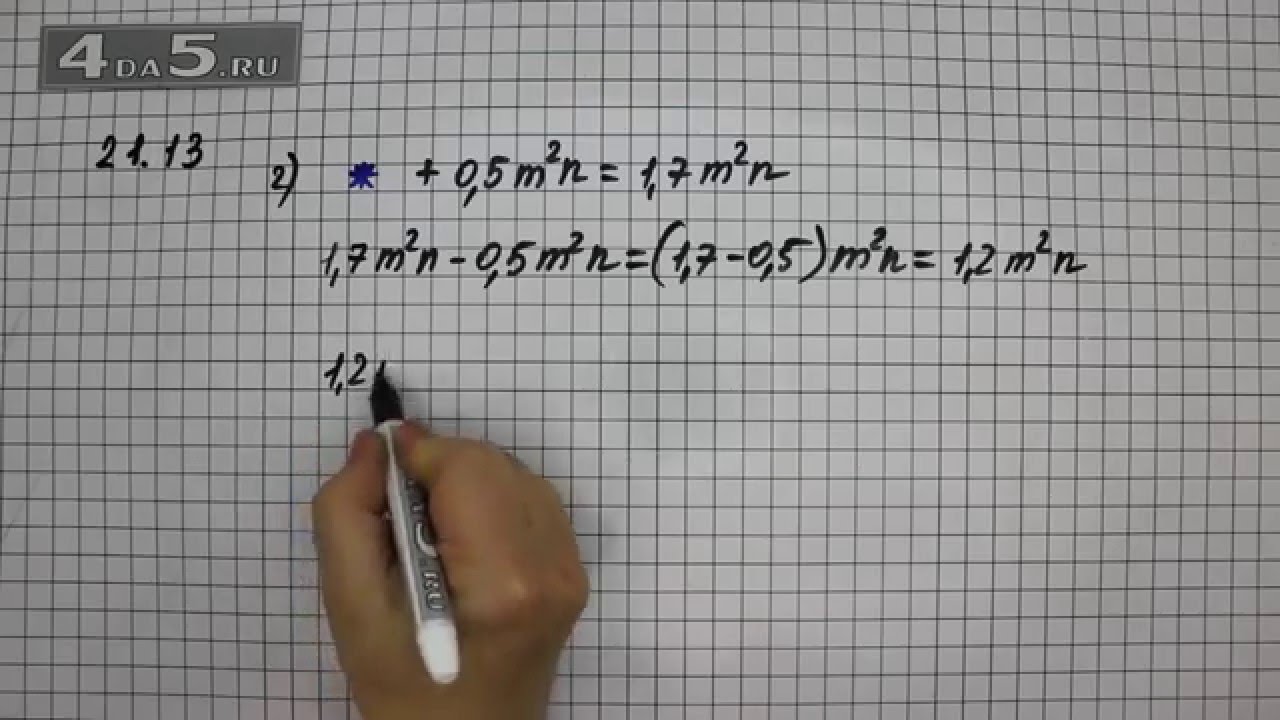 4DA5.RU
21.13
2) * + 0,5m²n = 1,7m²n
1,7m²n - 0,5m²n = (1,7 - 0,5)m²n = 1,2m²n
1,2
RU